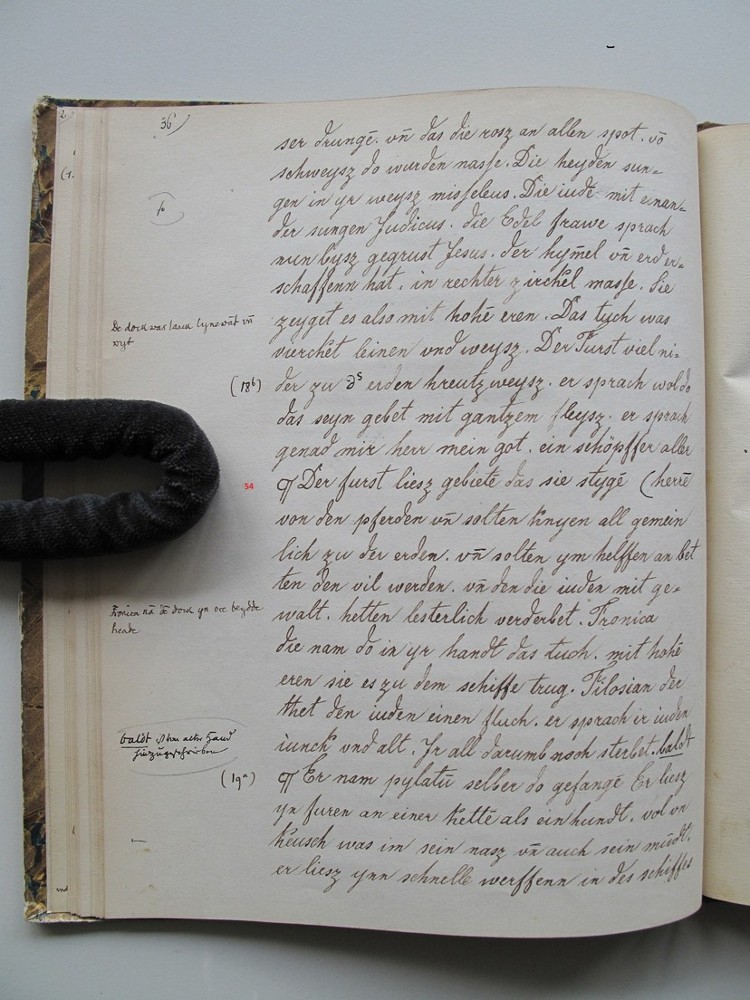 36)
ser drungē. vn̄ das die rosz an allen spot. vō
schweysz do wurden nasse. Die heyden sun=
gen in yr weysz misseleus. Die iudē mit einan=
der sungen Judicus. die Edel frawe sprach
nun bysz gegrust Jesus. der hym̄el vn̄ erd er=
schaffenn hat. in rechter zirckel masse. Sie
zeyget es also mit hohē eren. Das tuch was
De dock was lanck lynewāt vn̄
wyt
vierckēt leinen vnd weysz. Der Furst viel ni=
(18ᵇ)
der zu ds erden kreutzweysz. er sprach wol do
das seyn gebet mit gantzem fleysz. er sprach
genad mir herr mein got. ein schöpffer aller
54
¶ Der furst liesz gebietē das sie stygē (herrē
von den pferden vn̄ solten knyen all gemein
lich zu der erden. vn̄ solten ym helffen an bet
ten den vil werden. vn̄ den die iuden mit ge=
Fronica nā dē dock yn ere beydde
hende
walt. hetten lesterlich verderbet. Fronica
die nam do in yr handt das tuch. mit hohē
eren sie es zu dem schiffe trug. Tilosian der
thet den iuden einen fluch. er sprach ir iuden
baldt ist von alter Hand
hinzugeschrieben
iunck vnd alt. Ir all darumb noch sterbet. baldt
(19ᵃ)
¶ Er nam pylatū selber do gefangē Er liesz
yn furen an einer kette als ein hundt. vol vn
keusch was im sein nasz vn̄ auch sein mūdt.
er liesz ynn schnelle werffenn in des schiffes